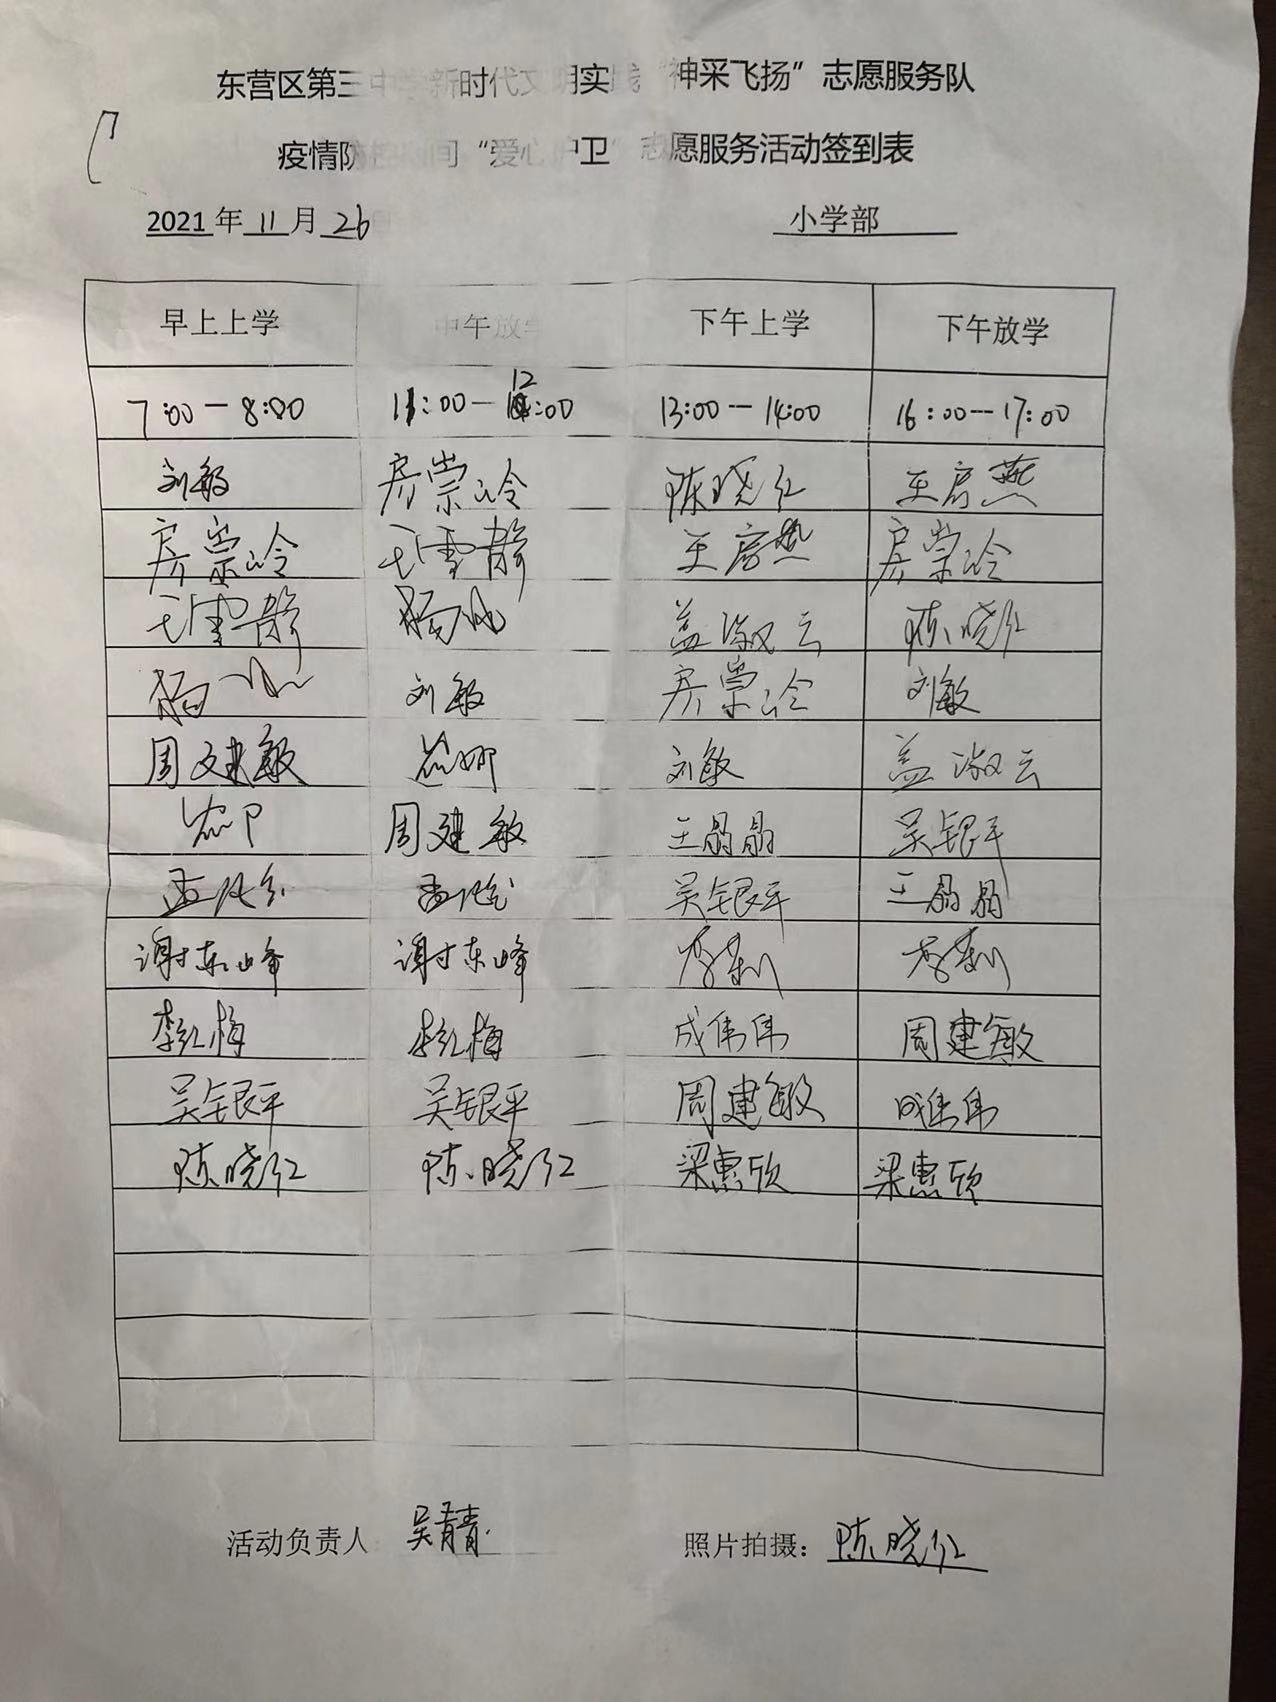 东营区第三中学新时代文明实践“神采飞扬”志愿服务队
疫情防控期间“爱心护卫”志愿服务活动签到表
2021年11月26日 小学部
早上上学 中午放学 下午上学 下午放学
7:00-8:00 11:00-12:00 13:00-14:00 16:00-17:00
刘敏 房崇冷 陈晓红 王房燕
房崇冷 毛雪静 王房燕 房崇冷
毛雪静 杨 盖淑云 陈晓红
杨 刘敏 房崇冷 刘敏
周建敏 娜 刘敏 盖淑云
周建敏 王晶晶 吴银平
孟 孟 吴银平 王晶晶
谢东峰 谢东峰 李莉 李莉
李红梅 李红梅 成伟伟 周建敏
吴银平 吴银平 周建敏 成伟伟
陈晓红 陈晓红 梁惠欣 梁惠欣
活动负责人 吴青青 照片拍摄：陈晓红